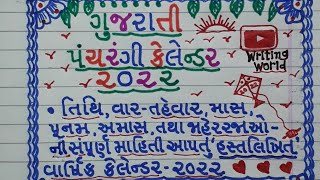 ગુજરાતી
પંચરંગી કેલેન્ડર
૨૦૨૨
Writing
World
• તિથિ, વાર-તહેવાર, માસ,
પૂનમ, અમાસ, તથા જાહેરરજાઓ-
ની સંપૂર્ણ માહિતી આપતું 'હસ્તલિખિત'
વાર્ષિક કેલેન્ડર-૨૦૨૨